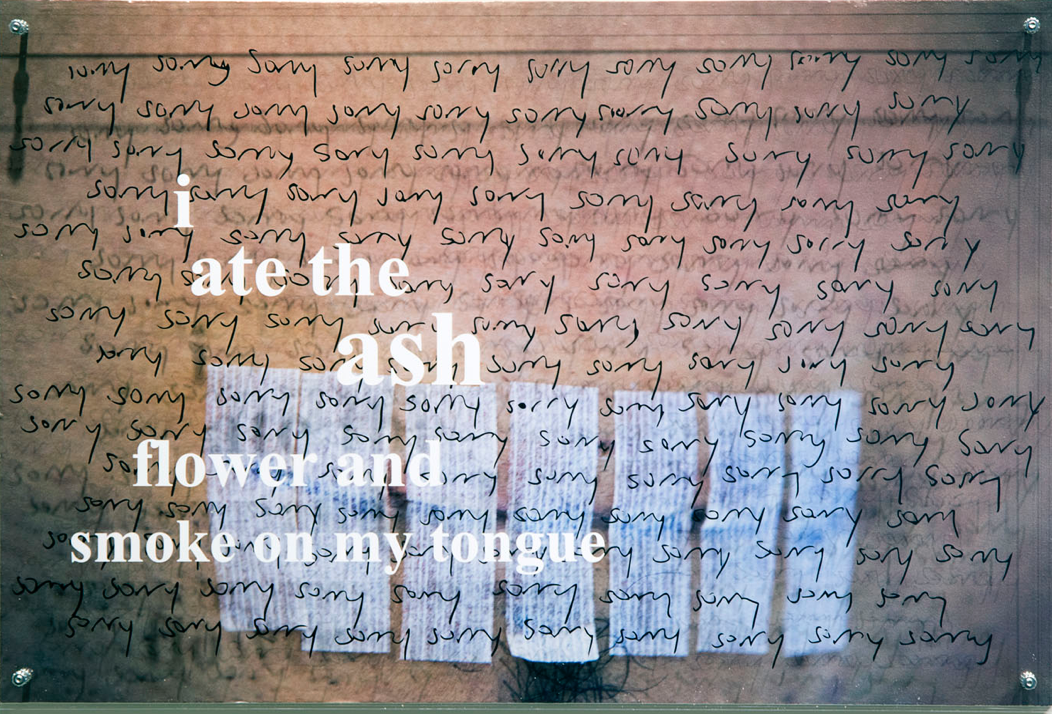 sorry sorry sorry sorry sorry sorry sorry sorry sorry sorry sorry
sorry sorry sorry sorry sorry sorry sorry sorry sorry sorry
sorry sorry sorry sorry sorry sorry sorry sorry sorry sorry
i
sorry sorry sorry sorry sorry sorry sorry sorry sorry
sorry sorry sorry sorry sorry sorry sorry sorry sorry sorry
ate the
sorry sorry sorry sorry sorry sorry sorry sorry
sorry sorry sorry sorry sorry sorry sorry sorry sorry sorry
ash
sorry sorry sorry sorry sorry sorry sorry sorry
sorry sorry sorry sorry sorry sorry sorry sorry sorry sorry sorry
sorry sorry sorry sorry sorry sorry sorry sorry sorry sorry
flower and
sorry sorry sorry sorry sorry sorry sorry
sorry sorry sorry sorry sorry sorry sorry sorry sorry sorry
smoke on my tongue
sorry sorry sorry sorry
sorry sorry sorry sorry sorry sorry sorry sorry sorry sorry
sorry sorry sorry sorry sorry sorry sorry sorry sorry sorry